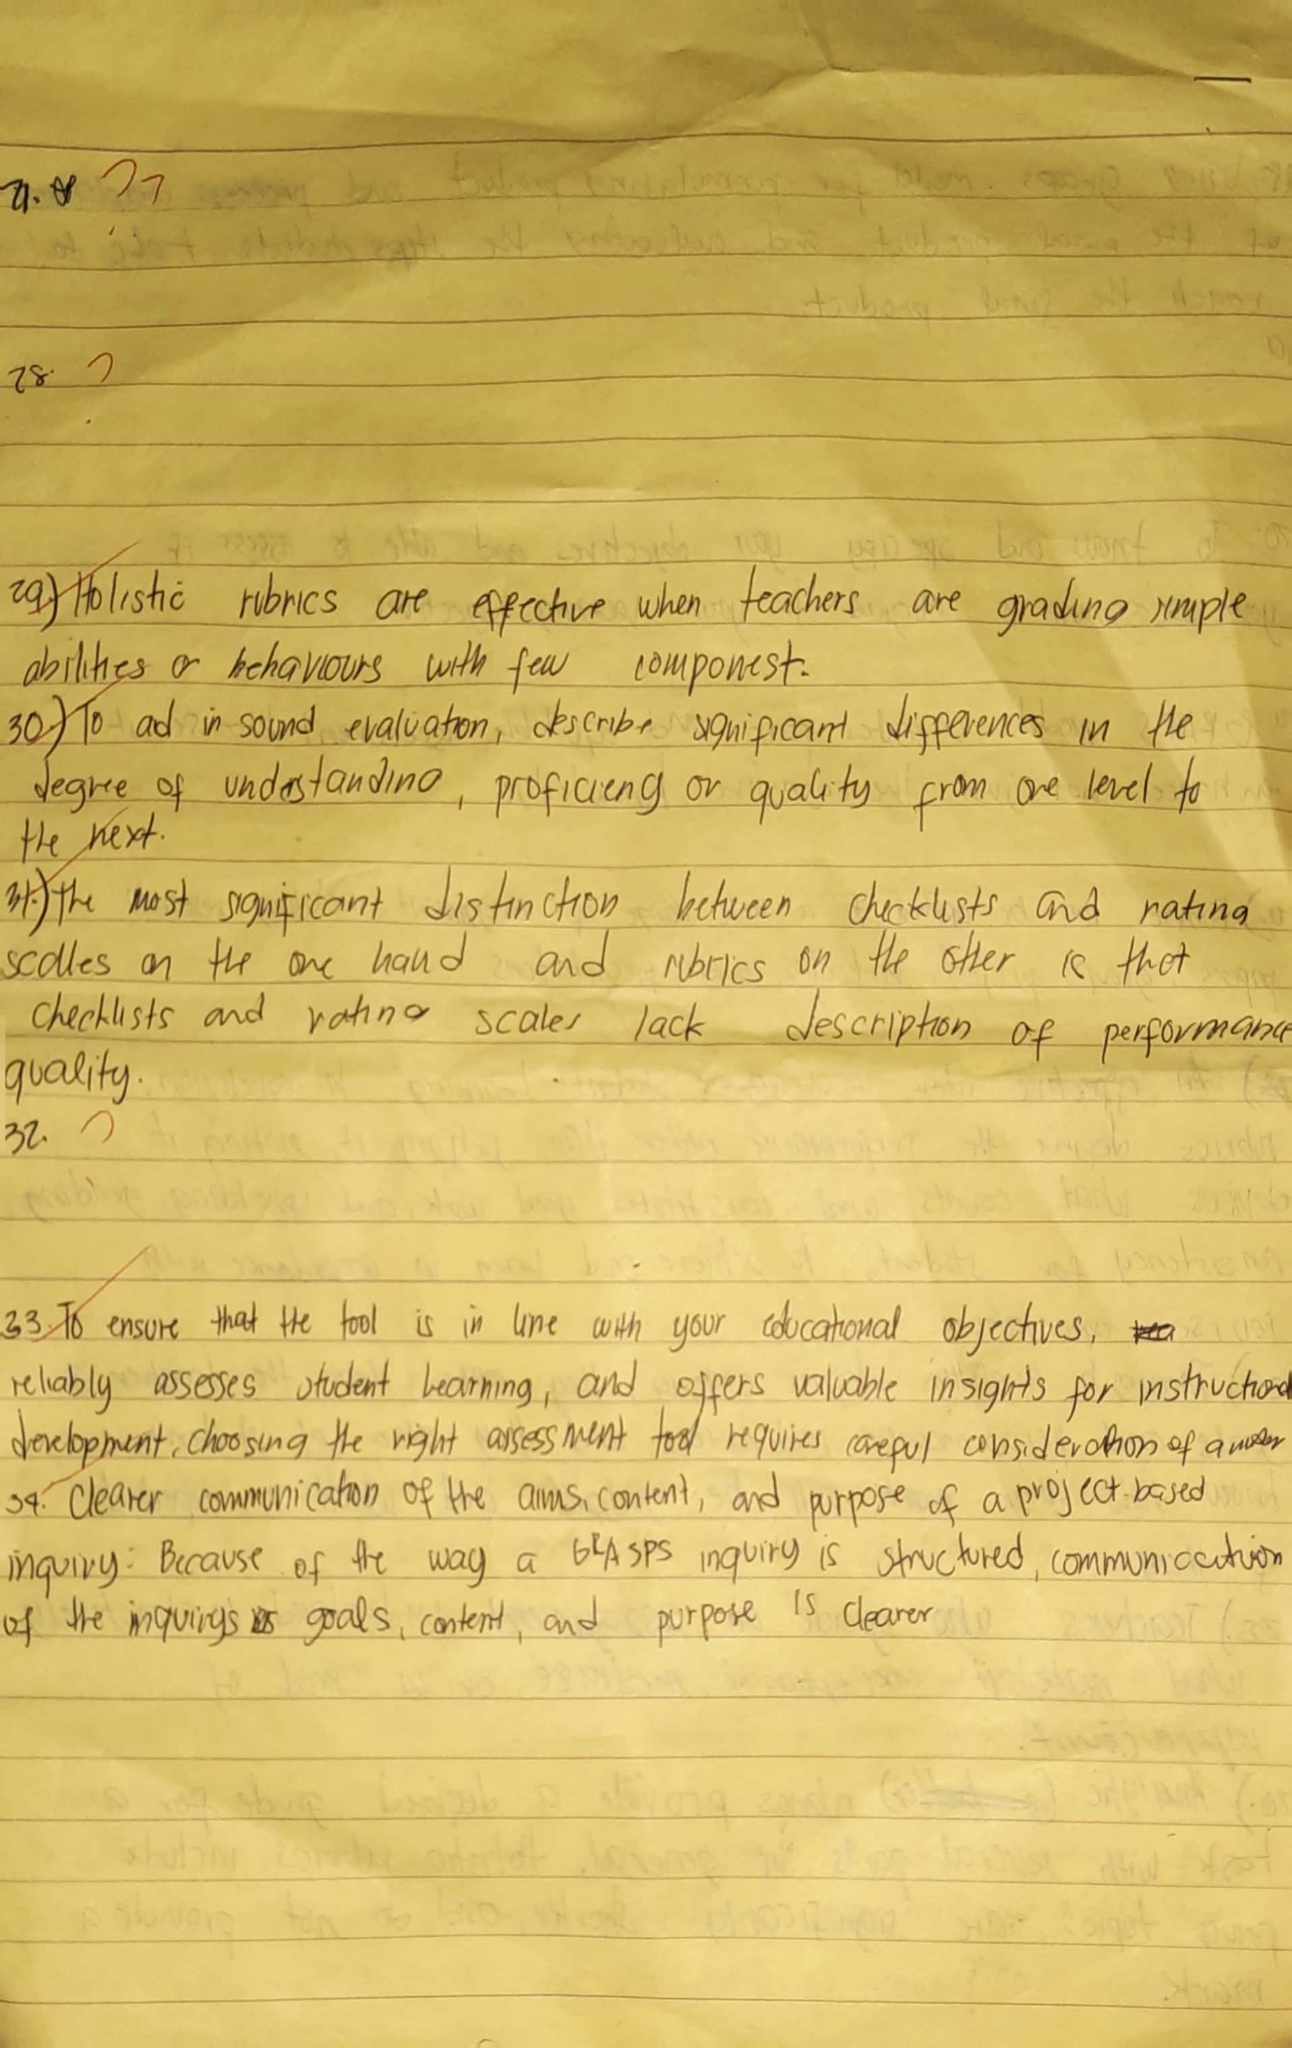 28.
29.) Holistic rubrics are effective when teachers are grading simple
abilities or behaviours with few componest.
30.) To ad in sound evaluation, describe significant differences in the
degree of understanding, proficieng or quality from one level to
the next.
31.) The most significant distinction between checklists and rating
scalles on the one hand and rubrics on the other is that
checklists and rating scales lack description of performance
quality.
32.
33. To ensure that the tool is in line with your educational objectives,
reliably assesses student learning, and offers valuable insights for
development, choosing the right assessment tool requires careful consideration of
34. Clearer communication of the aims, content, and purpose of a project-based
inquiry: Because of the way a GRASPS inquiry is structured, communication
of the inquirys goals, content, and purpose is clearer